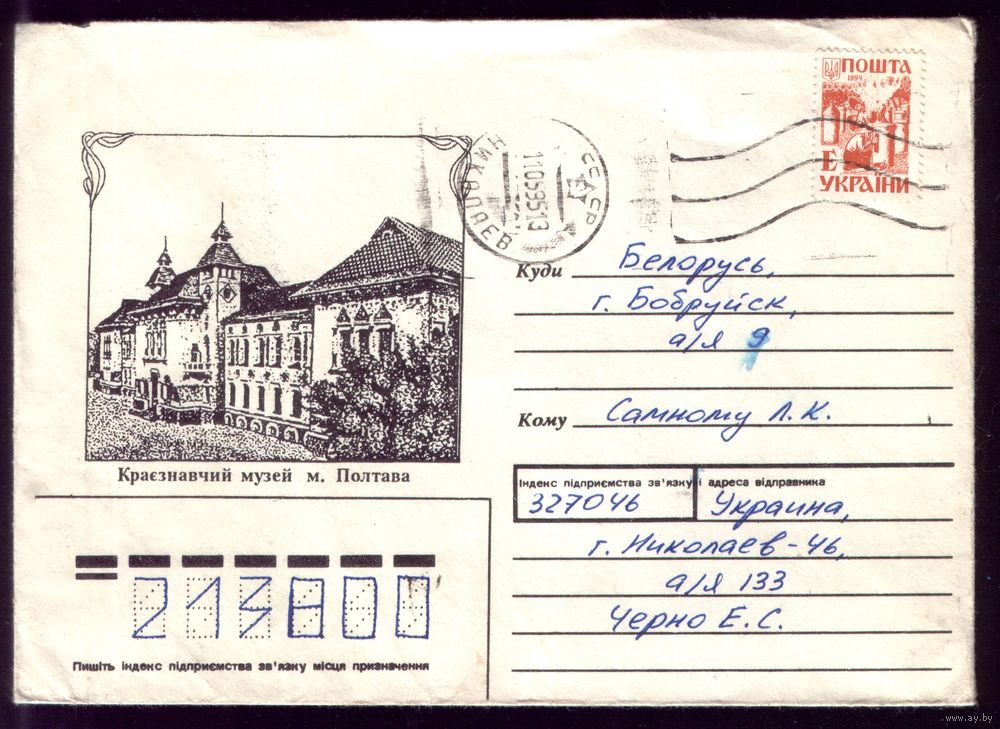 ПОШТА
1994
Е
УКРАЇНИ
СССР
110695 13
НИКОЛАЕВ
Куди Белорусь,
г. Бобруйск,
а/я 9
Кому Самному Л. К.
Краєзнавчий музей м. Полтава
Індекс підприємства зв'язку і адреса відправника
327046 Украина,
г. Николаев-46,
а/я 133
Черно Е. С.
213800
Пишіть індекс підприємства зв'язку місця призначення
www.ay.by